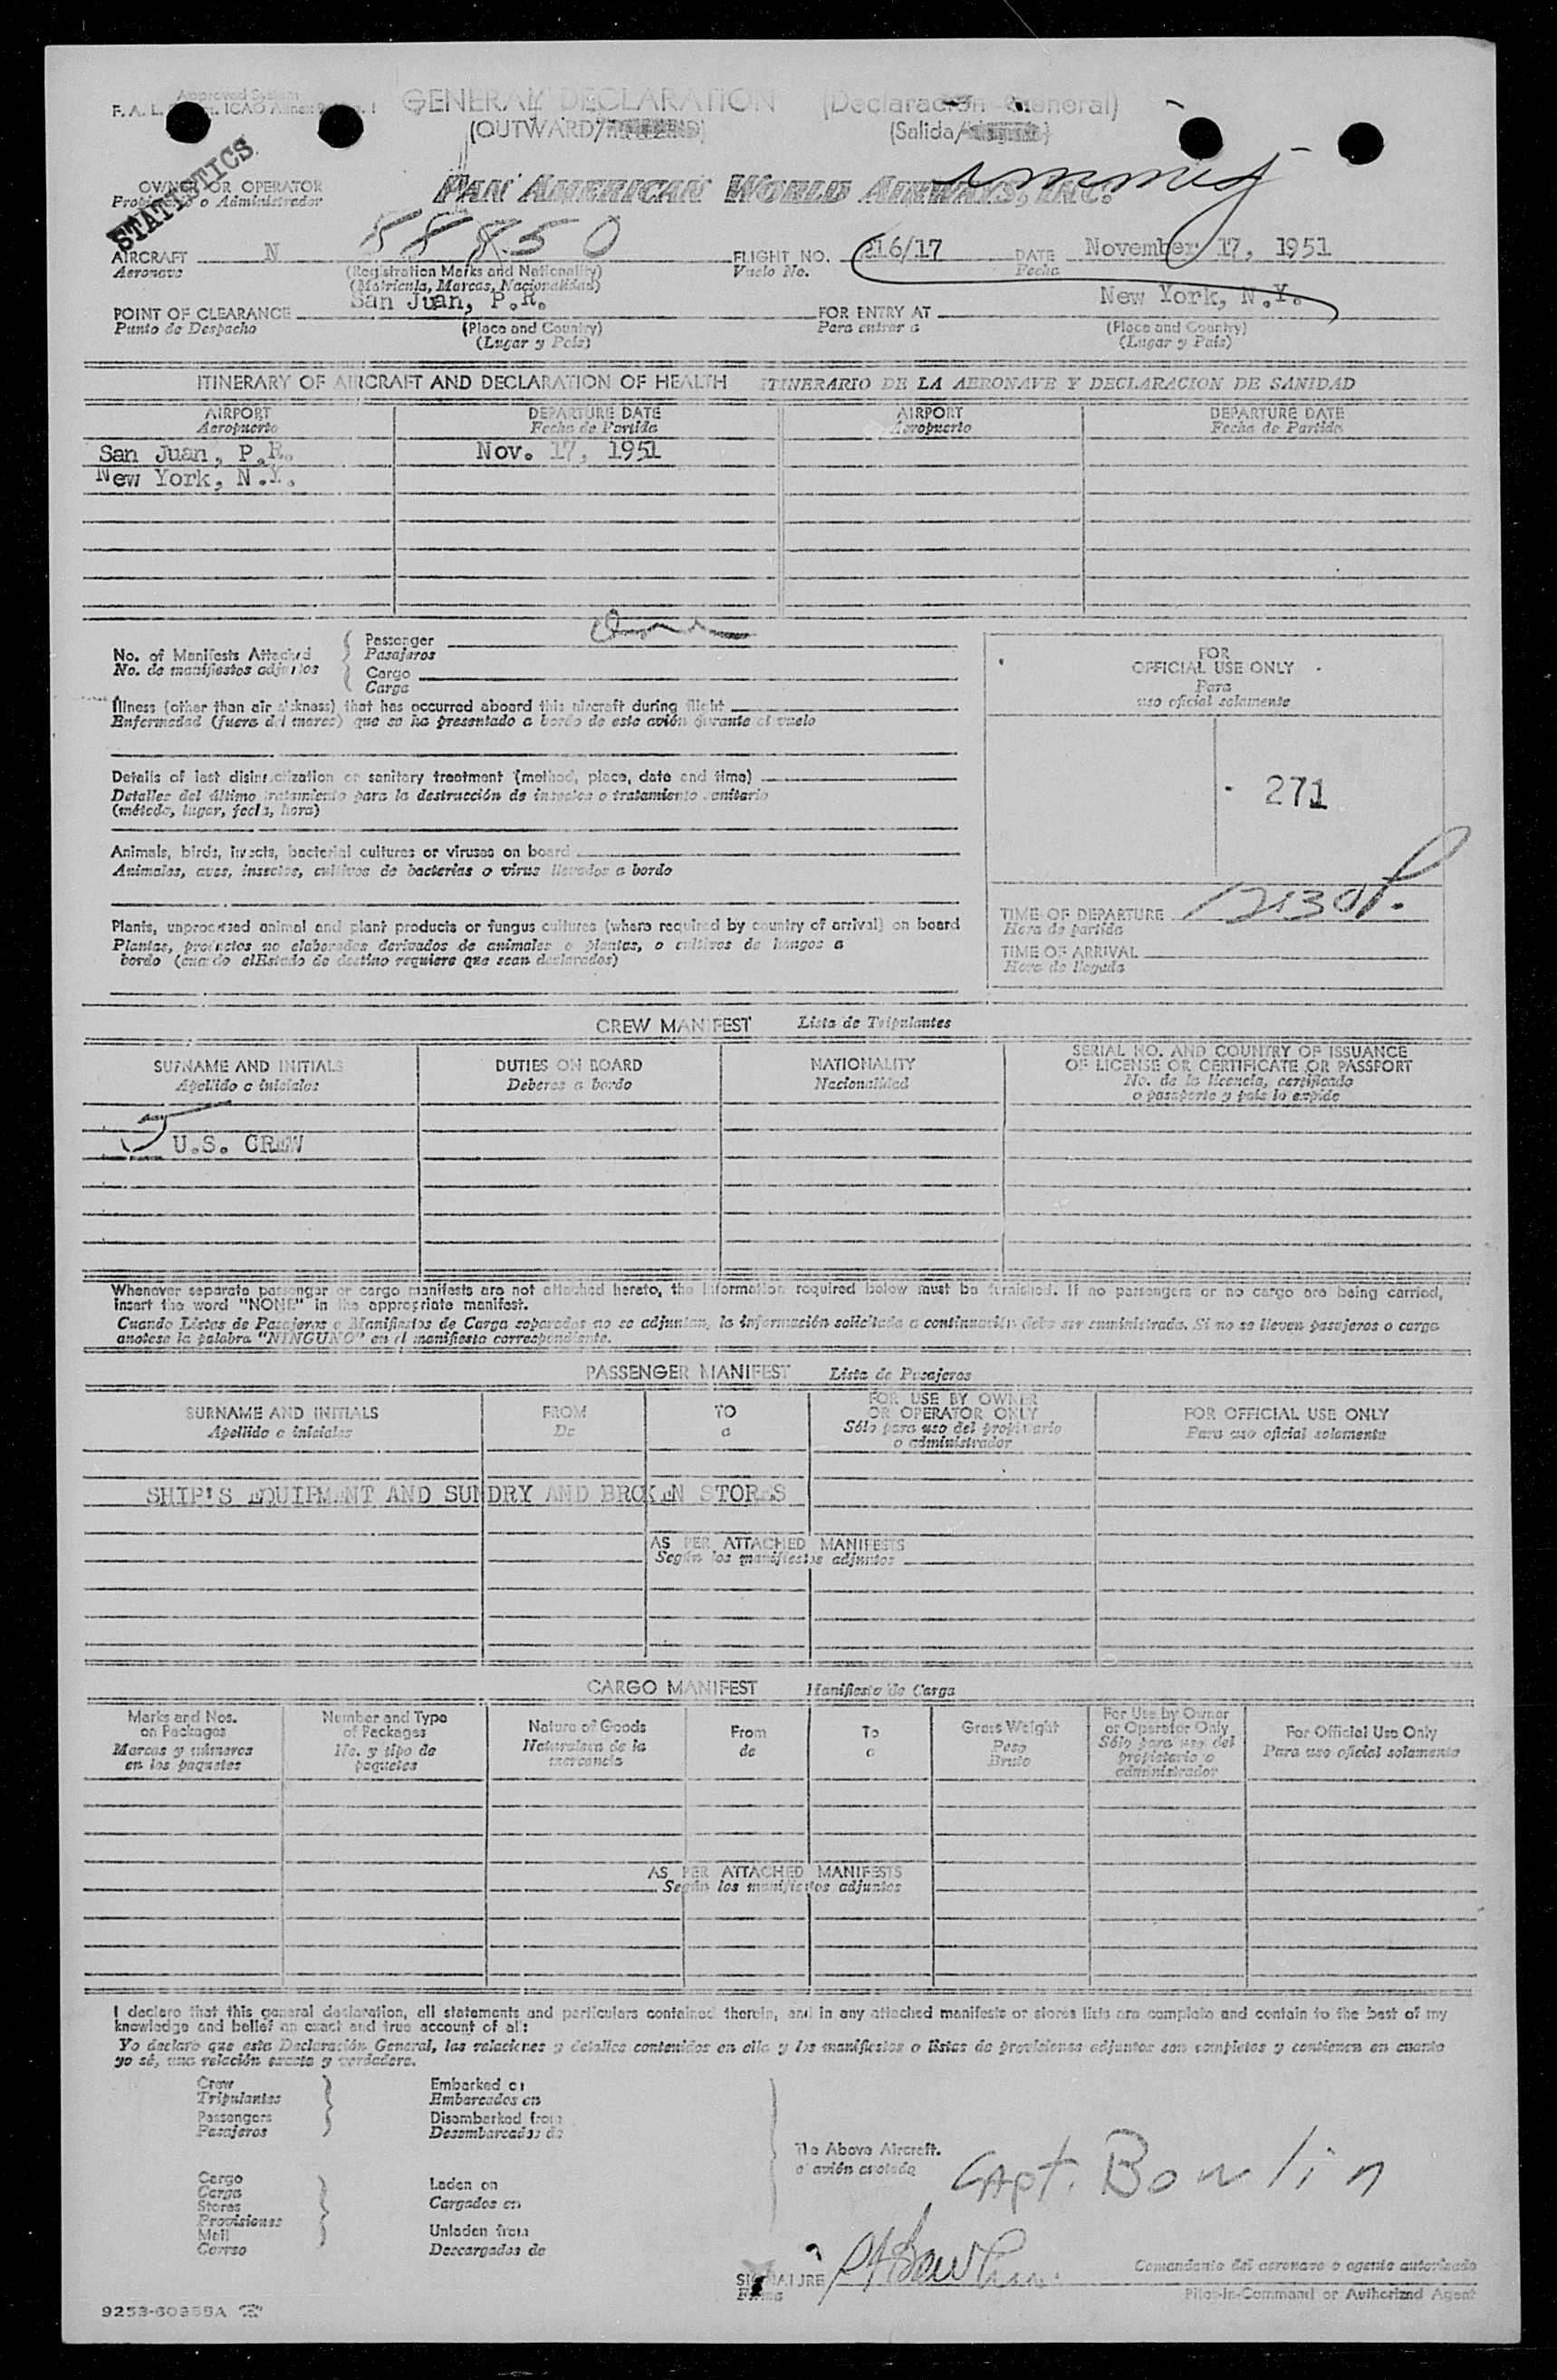 Approved System
F. A. L. ICAO Annex 9 1
GENERAL DECLARATION (Declaración General)
(OUTWARD/ (Salida/
STATISTICS
OWNER OR OPERATOR PAN AMERICAN WORLD AIRWAYS, INC.
Propietario o Administrador
AIRCRAFT N 58850 FLIGHT NO. 216/17 DATE November 17, 1951
Aeronave (Registration Marks and Nationality) Vuelo No. Fecha
(Matricula, Marcas, Nacionalidad)
POINT OF CLEARANCE San Juan, P.R. FOR ENTRY AT New York, N.Y.
Punto de Despacho (Place and Country) Para entrar a (Place and Country)
(Lugar y País) (Lugar y País)
ITINERARY OF AIRCRAFT AND DECLARATION OF HEALTH ITINERARIO DE LA AERONAVE Y DECLARACION DE SANIDAD
AIRPORT DEPARTURE DATE AIRPORT DEPARTURE DATE
Aeropuerto Fecha de Partida Aeropuerto Fecha de Partida
San Juan, P.R. Nov. 17, 1951
New York, N.Y.
No. of Manifests Attached Passenger
No. de manifiestos adjuntos Pasajeros
Cargo
Carga
Illness (other than air sickness) that has occurred aboard this aircraft during flight
Enfermedad (fuera del mareo) que se ha presentado a bordo de este avión durante el vuelo
Details of last disinsectization or sanitary treatment (method, place, date and time)
Detalles del último tratamiento para la destrucción de insectos o tratamiento sanitario
(método, lugar, fecha, hora)
Animals, birds, insects, bacterial cultures or viruses on board
Animales, aves, insectos, cultivos de bacterias o virus llevados a bordo
Plants, unprocessed animal and plant products or fungus cultures (where required by country of arrival) on board
Plantas, productos no elaborados derivados de animales o plantas, o cultivos de hongos a
bordo (cuando elEstado de destino requiere que sean declarados)
FOR
OFFICIAL USE ONLY
Para
uso oficial solamente
271
TIME OF DEPARTURE 12:30P.
Hora de partida
TIME OF ARRIVAL
Hora de llegada
CREW MANIFEST Lista de Tripulantes
SURNAME AND INITIALS DUTIES ON BOARD NATIONALITY SERIAL NO. AND COUNTRY OF ISSUANCE
Apellido e iniciales Deberes a bordo Nacionalidad OF LICENSE OR CERTIFICATE OR PASSPORT
No. de la licencia, certificado
o pasaporte y país lo expide
5 U.S. CREW
Whenever separate passenger or cargo manifests are not attached hereto, the information required below must be furnished. If no passengers or no cargo are being carried,
insert the word "NONE" in the appropriate manifest.
Cuando Listas de Pasajeros o Manifiestos de Carga separados no se adjuntan, la información solicitada a continuación debe ser suministrada. Si no se lleven pasajeros o carga
anotese la palabra "NINGUNO" en el manifiesto correspondiente.
PASSENGER MANIFEST Lista de Pasajeros
SURNAME AND INITIALS FROM TO FOR USE BY OWNER FOR OFFICIAL USE ONLY
Apellido e iniciales De a OR OPERATOR ONLY Para uso oficial solamente
Sólo para uso del propietario
o administrador
SHIP'S EQUIPMENT AND SUNDRY AND BROKEN STORES
AS PER ATTACHED MANIFESTS
Según los manifiestos adjuntos
CARGO MANIFEST Manifiesto de Carga
Marks and Nos. Number and Type Nature of Goods From To Gross Weight For Use by Owner For Official Use Only
on Packages of Packages Naturaleza de la de a Peso or Operator Only Para uso oficial solamente
Marcas y números No. y tipo de mercancía Bruto Sólo para uso del
en los paquetes paquetes propietario o
administrador
AS PER ATTACHED MANIFESTS
Según los manifiestos adjuntos
I declare that this general declaration, all statements and particulars contained therein, and in any attached manifests or stores lists are complete and contain to the best of my
knowledge and belief an exact and true account of all:
Yo declaro que esta Declaración General, las relaciones y detalles contenidos en ella y los manifiestos o listas de provisiones adjuntos son completos y contienen en cuanto
yo sé, una relación exacta y verdadera.
Crew Embarked on
Tripulantes Embarcados en
Passengers Disembarked from
Pasajeros Desembarcados de
The Above Aircraft.
el avión anotado Capt. Bowlin
Cargo Laden on
Carga Cargados en
Stores
Provisiones
Mail Unladen from
Correo Descargados de
SIGNATURE Comandante del aeronave o agente autorizado
Firma Pilot-in-Command or Authorized Agent
9253-60355A